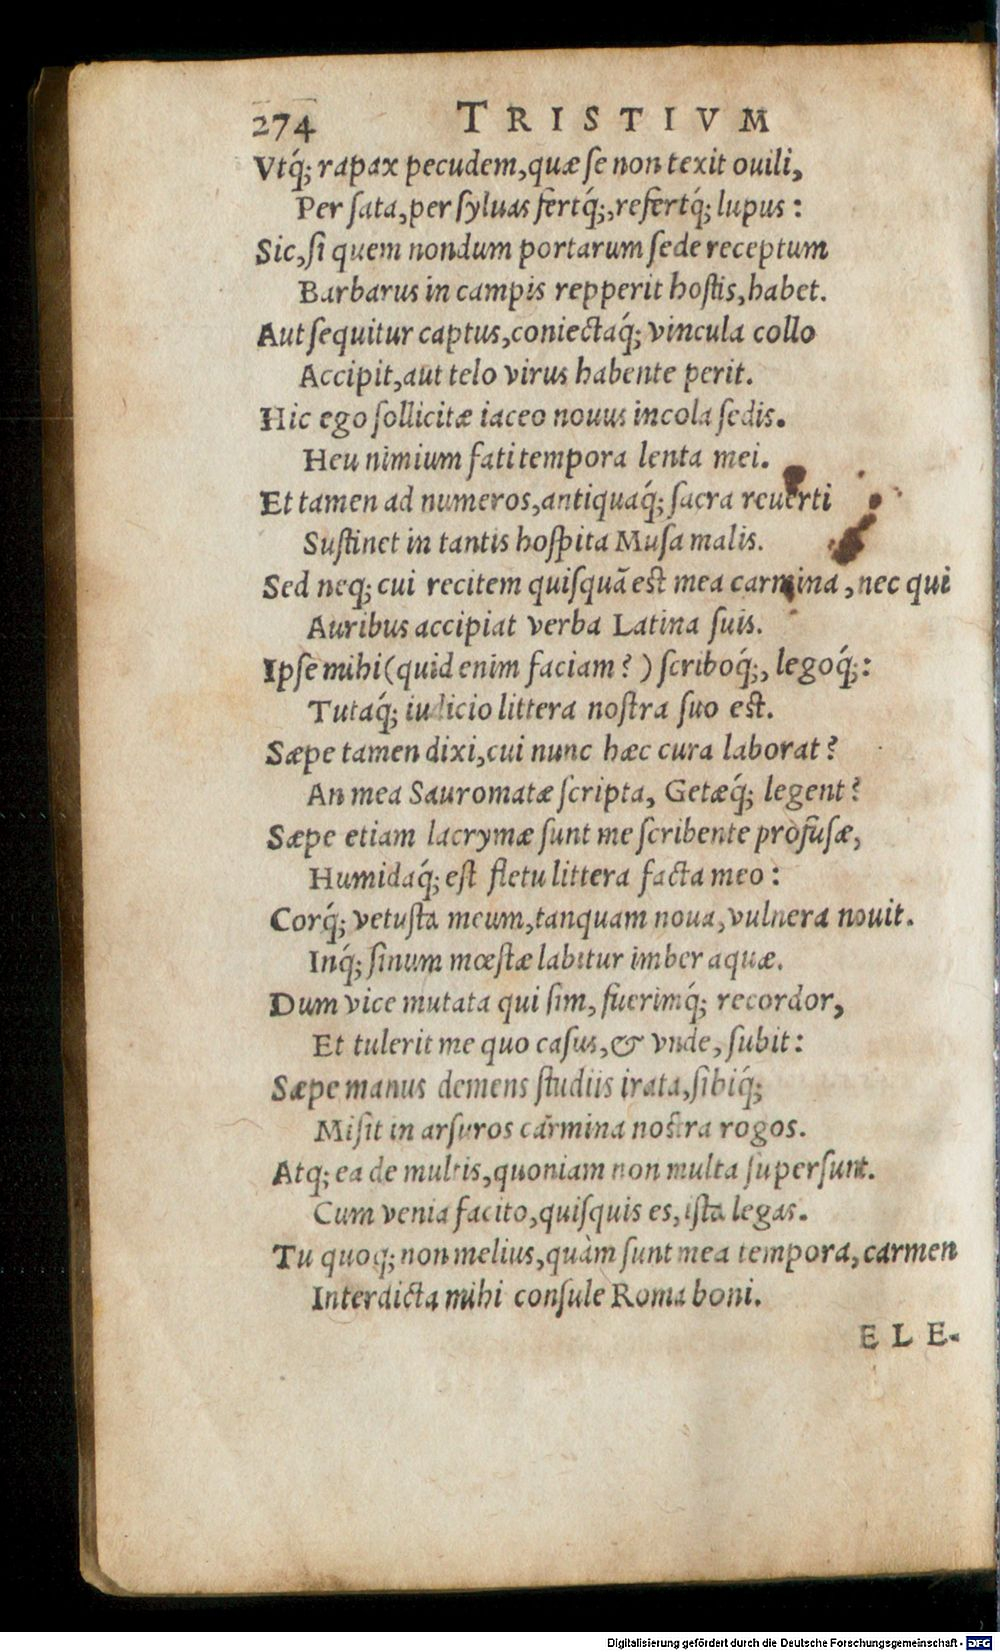 274 TRISTIVM
Vtq́; rapax pecudem, quæ ſe non texit ouili,
Per ſata, per ſyluas fertq́;, refertq́; lupus:
Sic, ſi quem nondum portarum ſede receptum
Barbarus in campis repperit hoſtis, habet.
Aut ſequitur captus, coniectaq́; vincula collo
Accipit, aut telo virus habente perit.
Hic ego ſollicitæ iaceo nouus incola ſedis.
Heu nimium fati tempora lenta mei.
Et tamen ad numeros, antiquaq́; ſacra reuerti
Suſtinet in tantis hoſpita Muſa malis.
Sed neq; cui recitem quiſquā est mea carmina, nec qui
Auribus accipiat verba Latina ſuis.
Ipſe mihi (quid enim faciam?) ſcriboq́;, legoq́;:
Tutaq́; iudicio littera noſtra ſuo est.
Sæpe tamen dixi, cui nunc hæc cura laborat?
An mea Sauromatæ ſcripta, Getæq́; legent?
Sæpe etiam lacrymæ ſunt me ſcribente profuſæ,
Humidaq́; eſt fletu littera facta meo:
Corq́; vetuſta meum, tanquam noua, vulnera nouit.
Inq́; ſinum mœſtæ labitur imber aquæ.
Dum vice mutata qui ſim, fuerimq́; recordor,
Et tulerit me quo caſus, & vnde, ſubit:
Sæpe manus demens ſtudiis irata, ſibiq́;
Miſit in arſuros carmina noſtra rogos.
Atq; ea de multis, quoniam non multa ſuperſunt.
Cum venia facito, quiſquis es, iſta legas.
Tu quoq; non melius, quàm ſunt mea tempora, carmen
Interdicta mihi conſule Roma boni.
ELE-
Digitalisierung gefördert durch die Deutsche Forschungsgemeinschaft - DFG